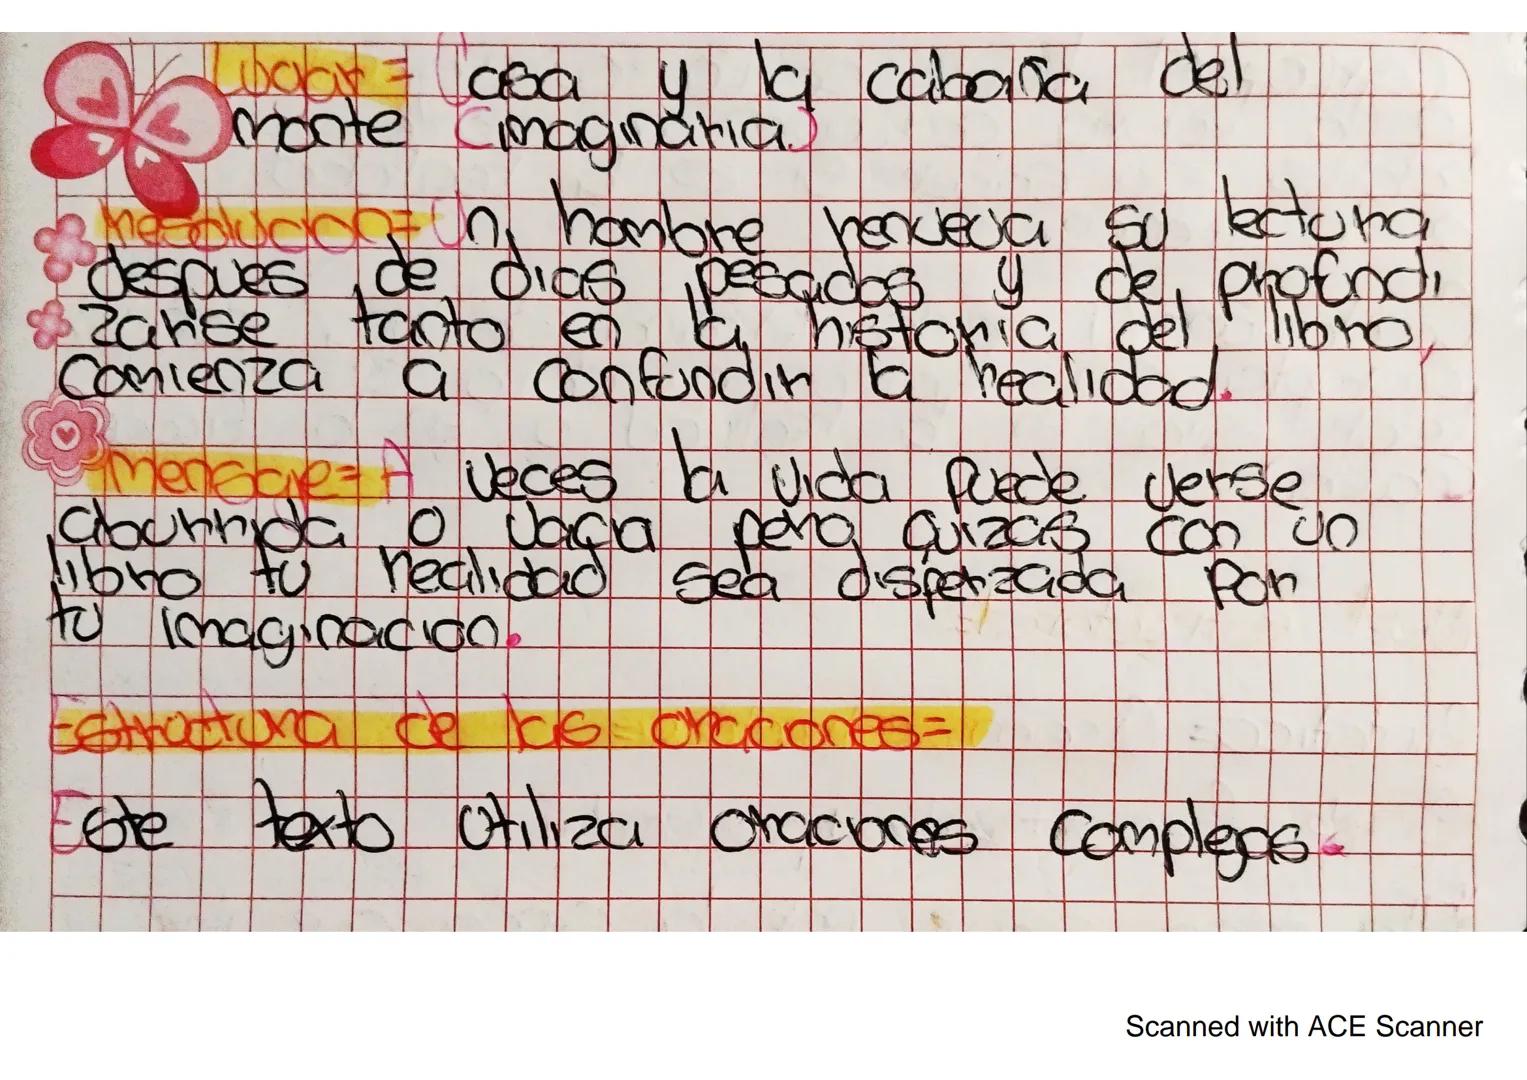 Lugar = Casa y la cabaña del
monte (imaginaria)
Resolucion= Un hombre renueva su lectura
despues de dias pesados y de profundi
zarse tanto en la historia del libro,
comienza a confundir la realidad.
mensaje= A veces la vida puede verse
aburrida o vacia pero quizas con un
libro tu realidad sea disperzada por
tu imaginacion.
Estructura de las oraciones=
Este texto utiliza oraciones complejas.
Scanned with ACE Scanner